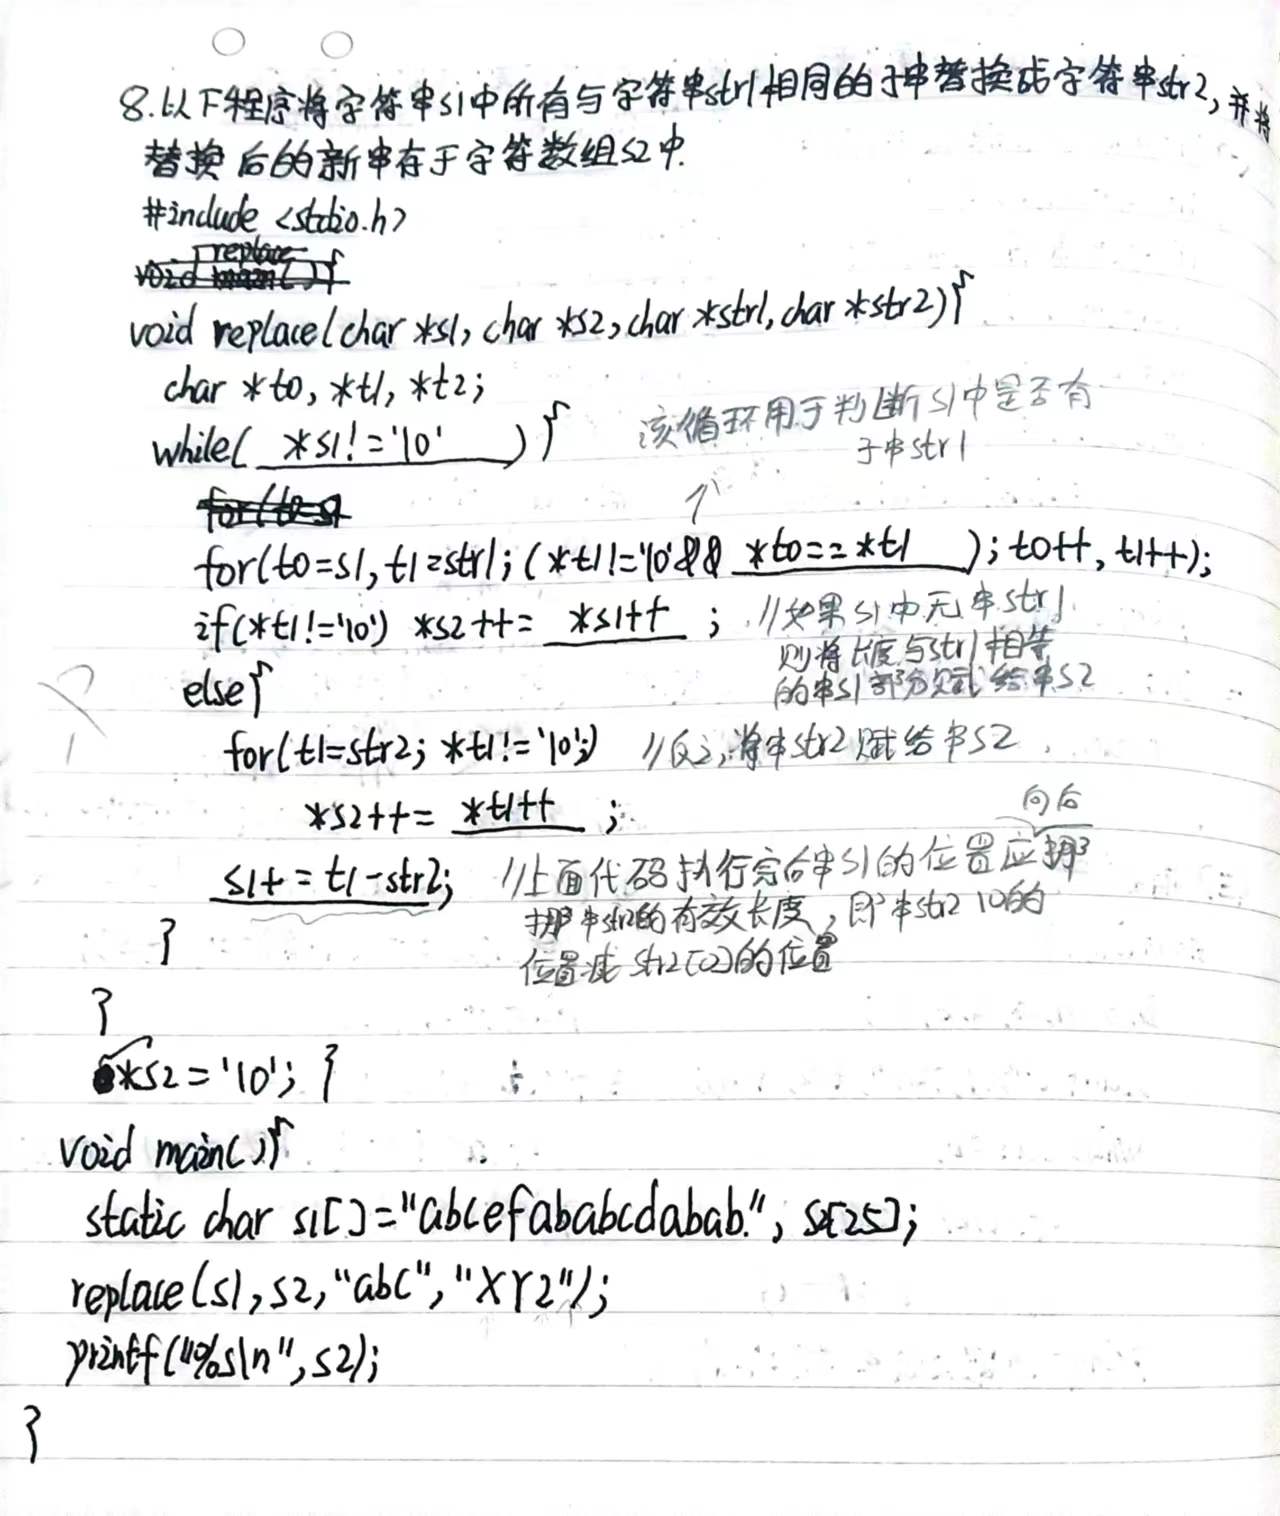 8.以下程序将字符串s1中所有与字符串str1相同的子串替换成字符串str2,并将
替换后的新串存于字符数组s2中.
#include <stdio.h>
void replace(char *s1, char *s2, char *str1, char *str2){
char *t0, *t1, *t2;
while( *s1!='\0' ){
该循环用于判断s1中是否有
子串str1
for(t0=s1, t1=str1; (*t1!='\0'&& *t0==*t1 ); t0++, t1++);
if(*t1!='\0') *s2++= *s1++ ; //如果s1中无串str1
则将长度与str1相等
的串s1部分赋给串s2
else{
for(t1=str2; *t1!='\0';) //反之,将串str2赋给串s2
*s2++= *t1++ ;
向后
s1+=t1-str2; //上面代码执行完后串s1的位置应挪
挪串str2的有效长度,即串str2 \0的
位置减str2[0]的位置
}
}
*s2='\0'; }
void main(){
static char s1[]="abcefababcdabab.", s2[25];
replace(s1,s2,"abc","XYZ");
printf("%s\n",s2);
}